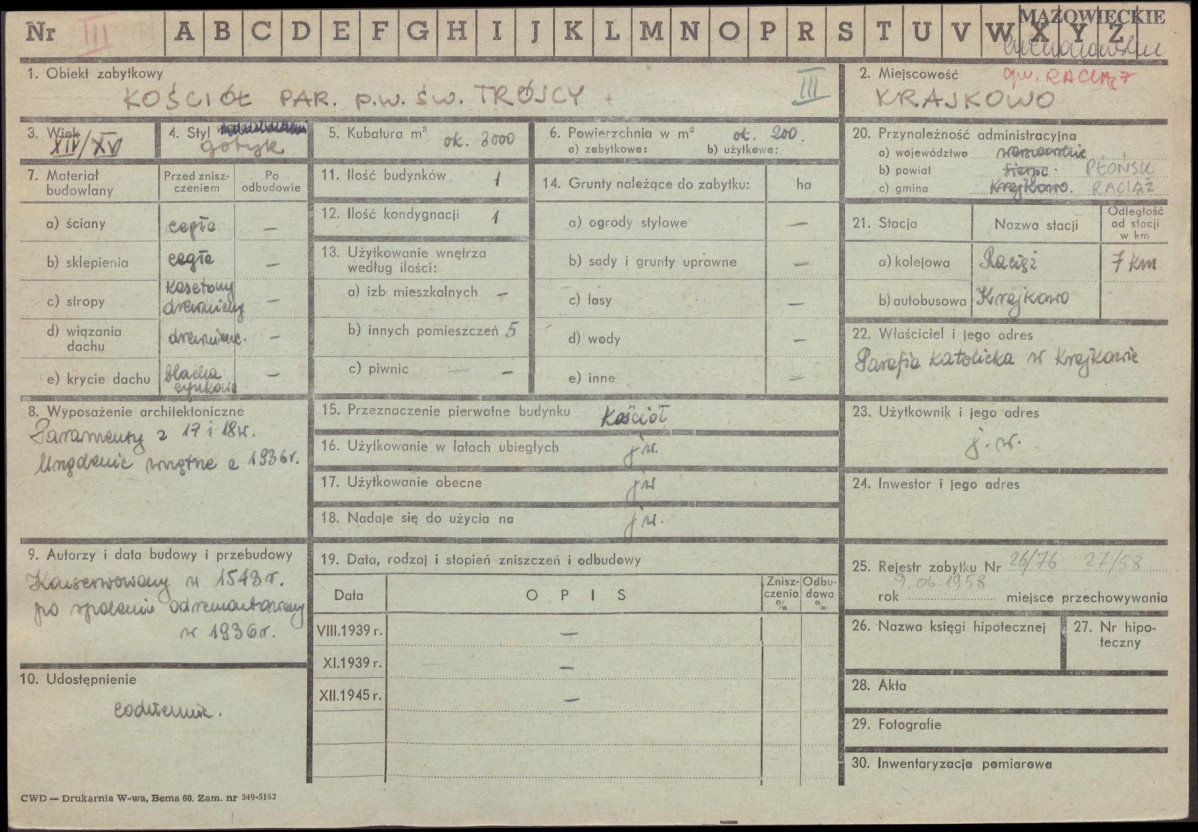 Nr III A B C D E F G H I J K L M N O P R S T U V W X Y Z
MAZOWIECKIE
1. Obiekt zabytkowy
KOŚCIÓŁ PAR. p.w. ŚW. TRÓJCY
III
2. Miejscowość gm. RACIĄŻ
KRAJKOWO
3. Wiek
XIV/XV
4. Styl
gotyk
5. Kubatura m³
ok. 3000
6. Powierzchnia w m² ok. 200
a) zabytkowa: b) użytkowa:
7. Materiał budowlany
Przed zniszczeniem
Po odbudowie
a) ściany cegła —
b) sklepienia cegła —
c) stropy kasetony drewniany —
d) wiązania dachu drewniane. —
e) krycie dachu blacha cynkowa —
8. Wyposażenie architektoniczne
Paramenty z 17 i 18 w.
Urządzenie wnętrza z 1936 r.
9. Autorzy i data budowy i przebudowy
Konserwowany w 1543 r.
po spaleniu odremontowany
w 1936 r.
10. Udostępnienie
codziennie.
11. Ilość budynków 1
12. Ilość kondygnacji 1
13. Użytkowanie wnętrza
według ilości:
a) izb mieszkalnych —
b) innych pomieszczeń 5
c) piwnic —
14. Grunty należące do zabytku: ha
a) ogrody stylowe —
b) sady i grunty uprawne —
c) lasy —
d) wody —
e) inne —
15. Przeznaczenie pierwotne budynku Kościół
16. Użytkowanie w latach ubiegłych j.w.
17. Użytkowanie obecne j.w
18. Nadaje się do użycia na j.w.
19. Data, rodzaj i stopień zniszczeń i odbudowy
Data O P I S Zniszczenia % Odbudowa %
VIII.1939 r. —
XI.1939 r. —
XII.1945 r. —
20. Przynależność administracyjna
a) województwo warszawskie
b) powiat Sierpc. PŁOŃSK
c) gmina Krajkowo. RACIĄŻ
21. Stacja Nazwa stacji Odległość od stacji w km
a) kolejowa Raciąż 7 km
b) autobusowa Krajkowo
22. Właściciel i jego adres
Parafia Katolicka w Krajkowie
23. Użytkownik i jego adres
j. w.
24. Inwestor i jego adres
25. Rejestr zabytku Nr 26/76 27/58
9.06.1958
rok miejsce przechowywania
26. Nazwa księgi hipotecznej
27. Nr hipoteczny
28. Akta
29. Fotografie
30. Inwentaryzacja pomiarowa
CWD — Drukarnia W-wa, Bema 60. Zam. nr 349-5162